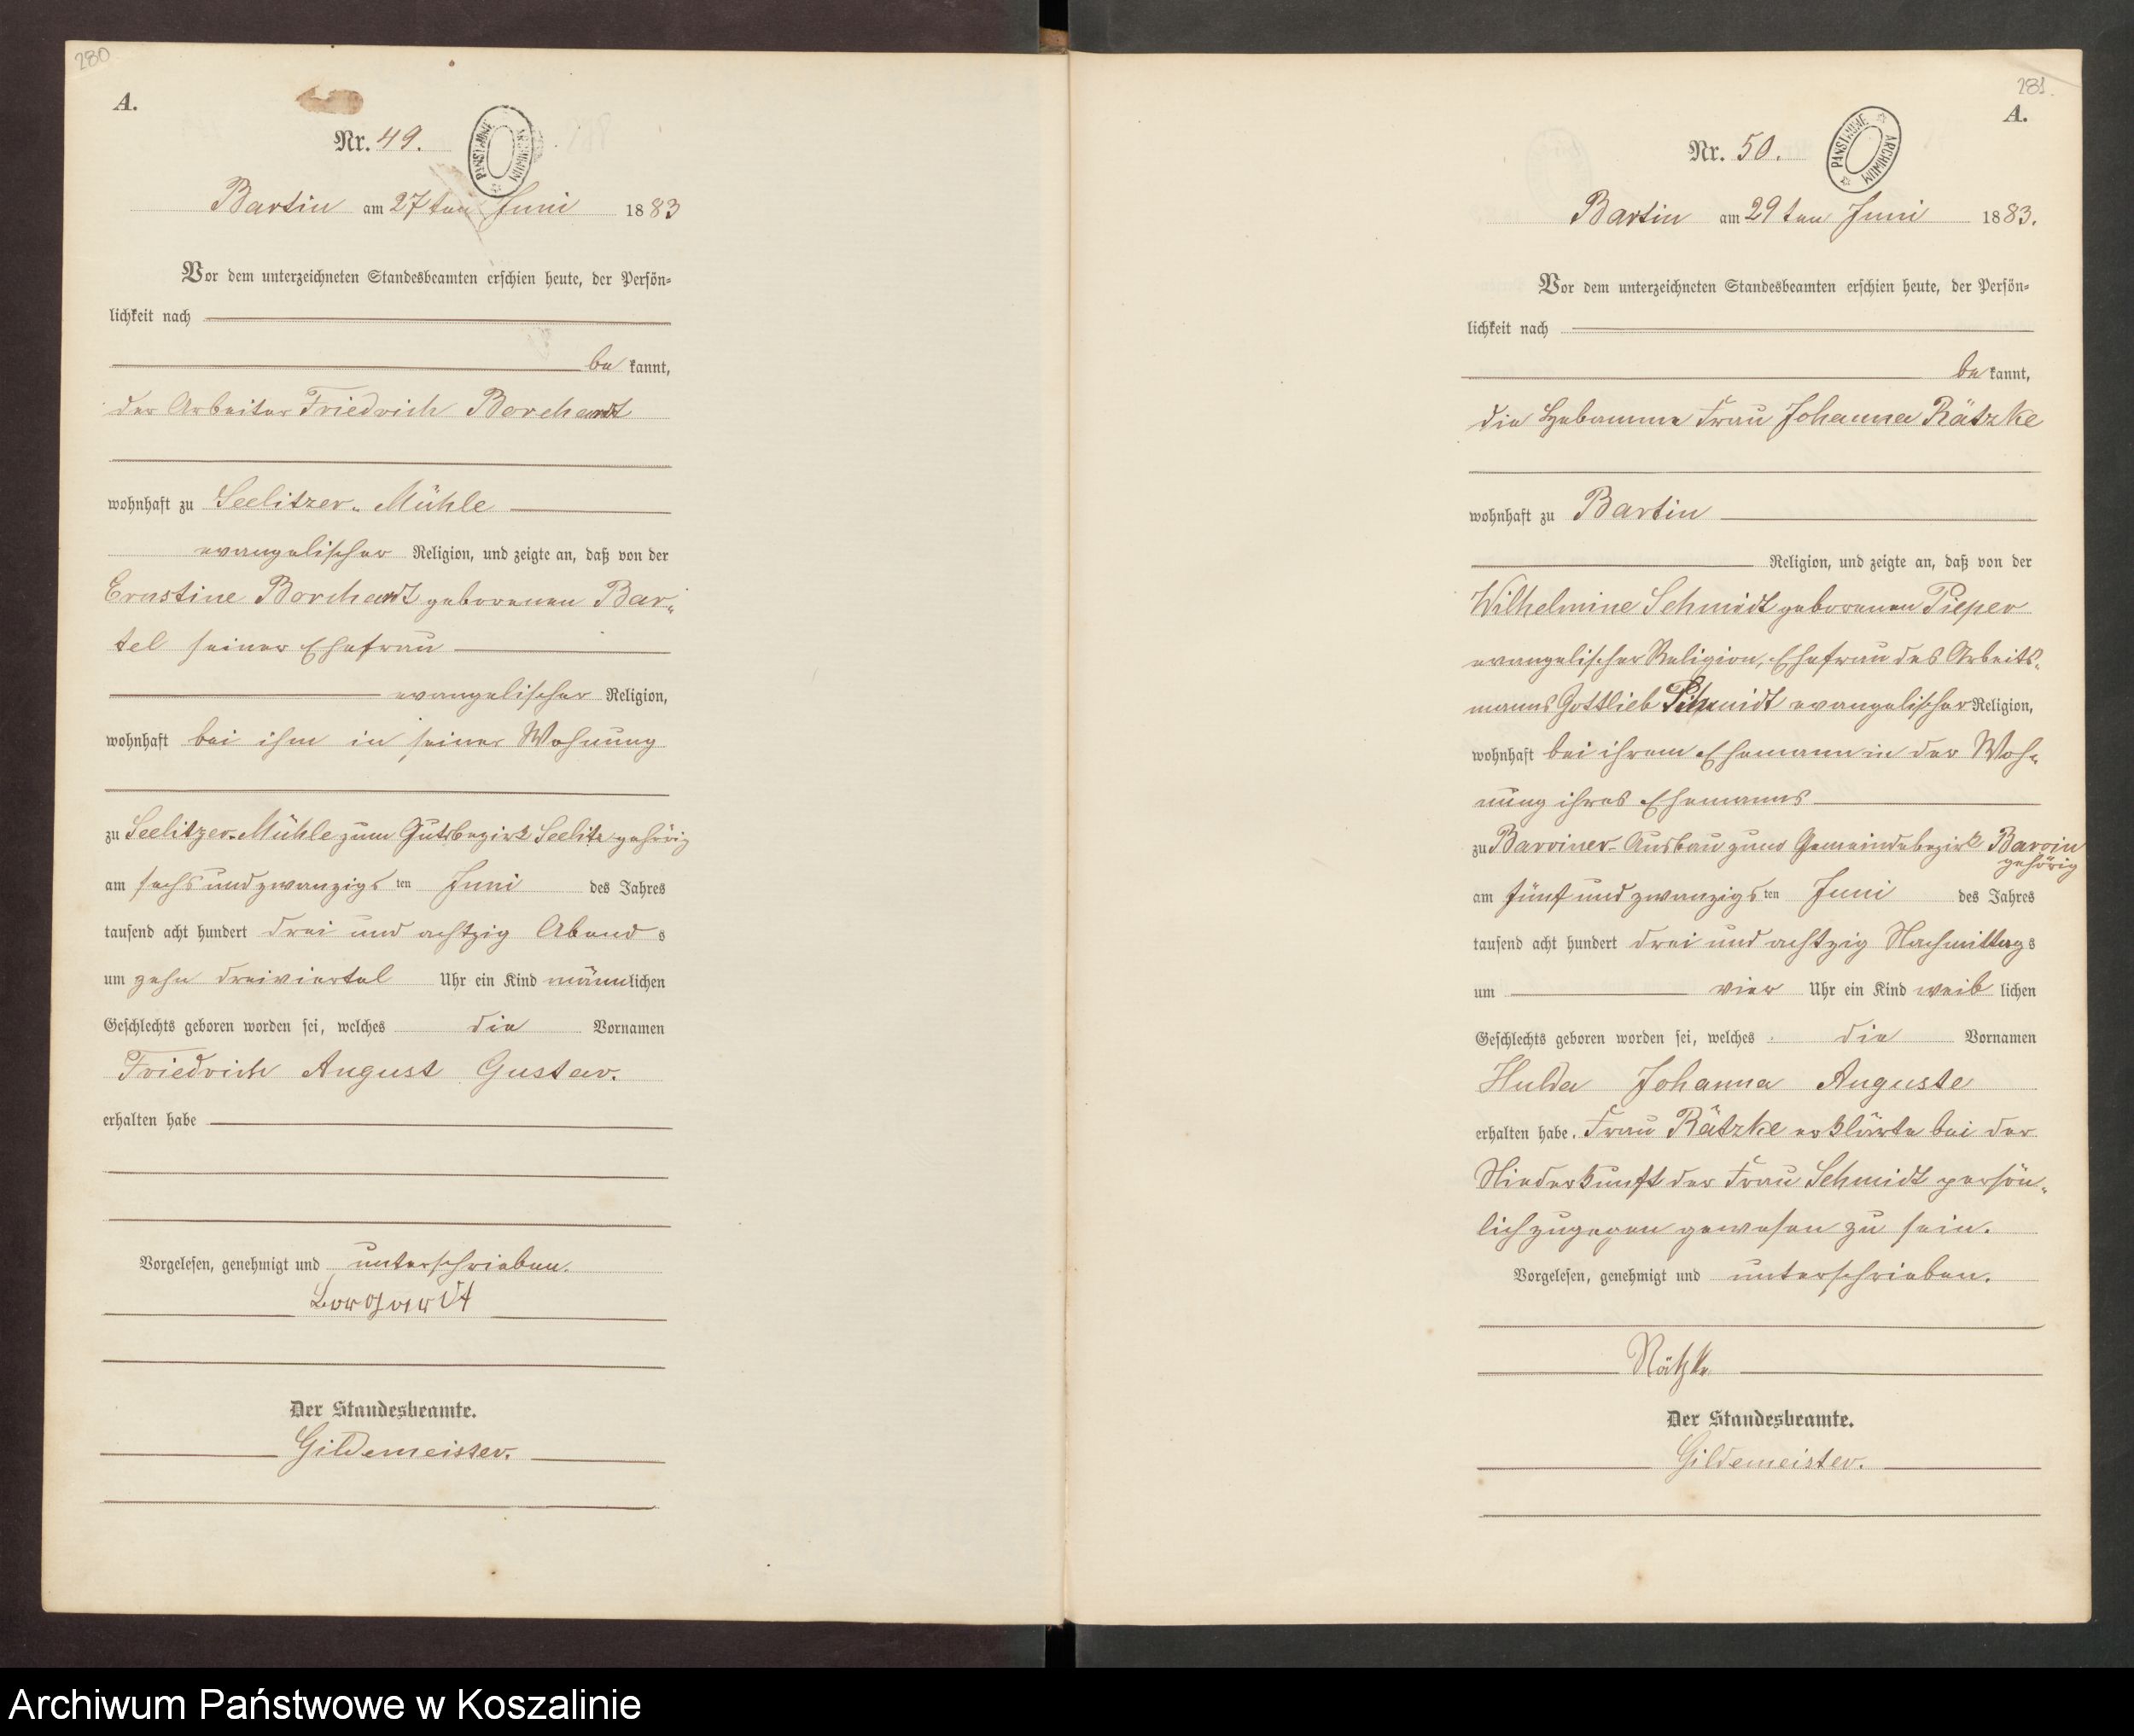 280
A.
Nr. 49.
PAŃSTWOWE ARCHIWUM
Bartin am 27ten Juni 1883
Vor dem unterzeichneten Standesbeamten erschien heute, der Persön-
lichkeit nach
be kannt,
der Arbeiter Friedrich Borchardt
wohnhaft zu Seelitzer-Mühle
evangelischer Religion, und zeigte an, daß von der
Ernstine Borchardt geborenen Bar-
tel seiner Ehefrau
evangelischer Religion,
wohnhaft bei ihm in seiner Wohnung
zu Seelitzer-Mühle zum Gutsbezirk Seelitz gehörig
am sechs und zwanzigs ten Juni des Jahres
tausend acht hundert drei und achtzig Abend s
um zehn dreiviertel Uhr ein Kind männlichen
Geschlechts geboren worden sei, welches die Vornamen
Friedrich August Gustav.
erhalten habe
Vorgelesen, genehmigt und unterschrieben.
Borchardt
Der Standesbeamte.
Gildemeister.
281.
A.
Nr. 50.
PAŃSTWOWE ARCHIWUM
Bartin am 29ten Juni 1883.
Vor dem unterzeichneten Standesbeamten erschien heute, der Persön-
lichkeit nach
be kannt,
die Hebamme Frau Johanna Rätzke
wohnhaft zu Bartin
Religion, und zeigte an, daß von der
Wilhelmine Schmidt geborenen Pieper
evangelischer Religion, Ehefrau des Arbeits-
manns Gottlieb Schmidt evangelischer Religion,
wohnhaft bei ihrem Ehemann in der Woh-
nung ihres Ehemanns
zu Barviner-Ausbau zum Gemeindebezirk Barvin
gehörig
am fünf und zwanzigs ten Juni des Jahres
tausend acht hundert drei und achtzig Nachmittag s
um vier Uhr ein Kind weib lichen
Geschlechts geboren worden sei, welches die Vornamen
Hulda Johanna Auguste
erhalten habe. Frau Rätzke erklärte bei der
Niederkunft der Frau Schmidt persön-
lich zugegen gewesen zu sein.
Vorgelesen, genehmigt und unterschrieben.
Rätzke
Der Standesbeamte.
Gildemeister.
Archiwum Państwowe w Koszalinie